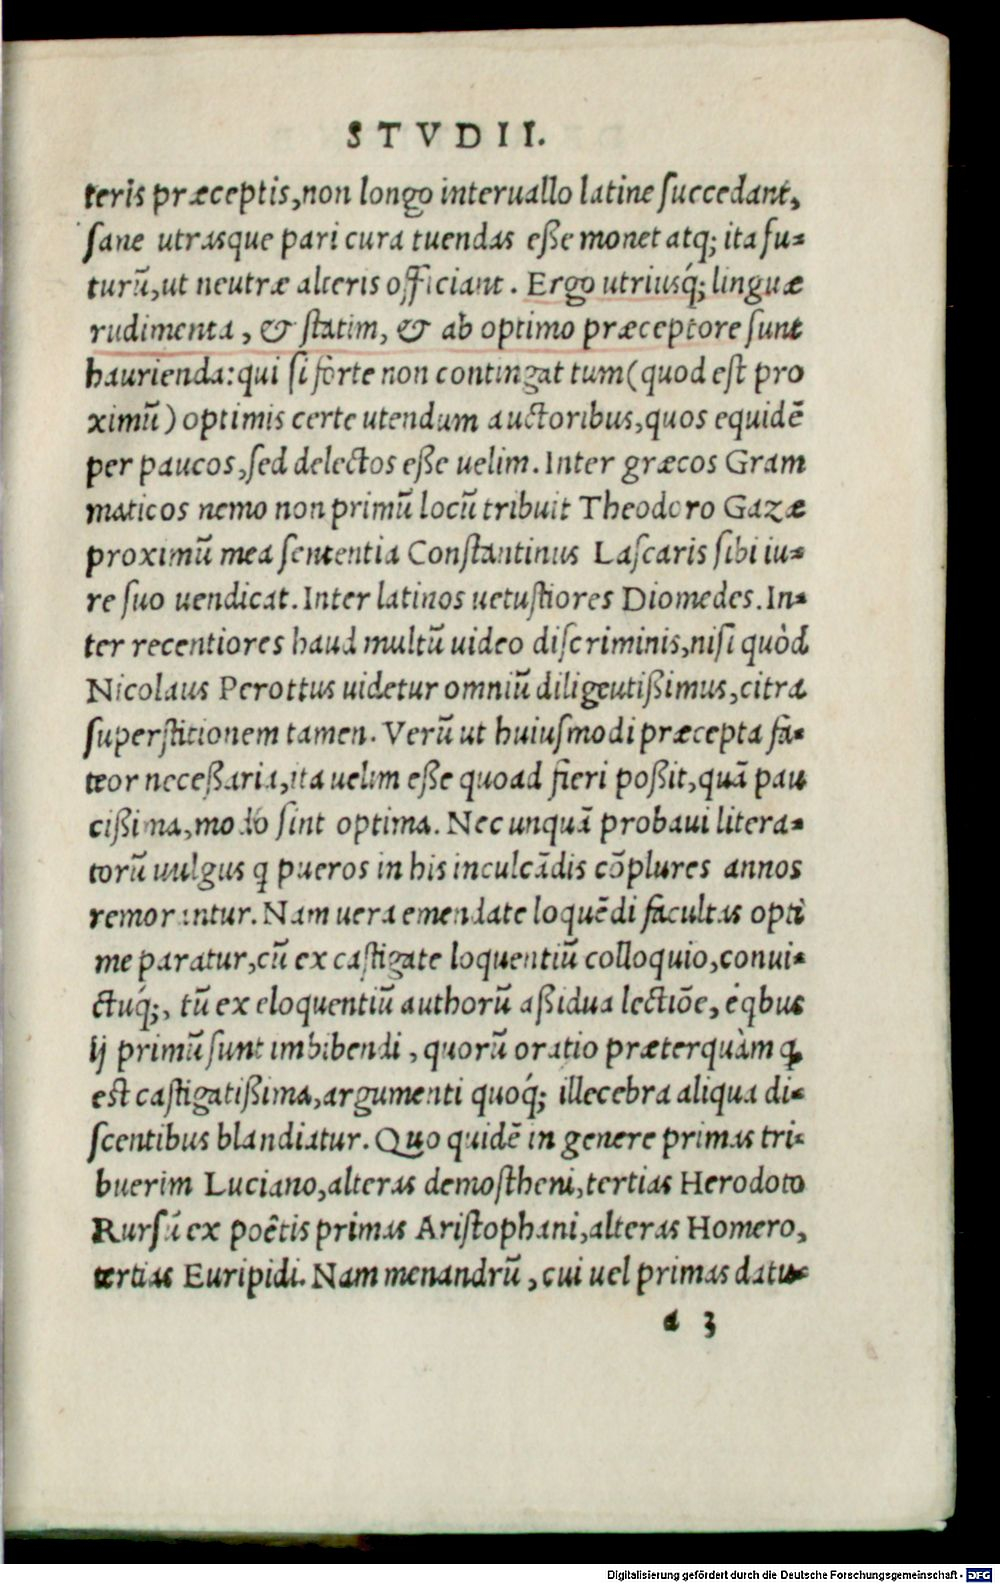 STVDII.
teris præceptis, non longo interuallo latine succedant,
sane utrasque pari cura tuendas eße monet atq; ita fu-
turū, ut neutræ alteris officiant. Ergo utriusq́; linguæ
rudimenta, & statim, & ab optimo præceptore sunt
haurienda: qui si forte non contingat tum (quod est pro
ximū) optimis certe utendum auctoribus, quos equidē
per paucos, sed delectos eße uelim. Inter græcos Gram
maticos nemo non primū locū tribuit Theodoro Gazæ
proximū mea sententia Constantinus Lascaris sibi iu-
re suo uendicat. Inter latinos uetustiores Diomedes. In-
ter recentiores haud multū uideo discriminis, nisi quòd
Nicolaus Perottus uidetur omniū diligeutißimus, citra
superstitionem tamen. Verū ut huiusmodi præcepta fa-
teor neceßaria, ita uelim eße quoad fieri poßit, quā pau
cißima, modo sint optima. Nec unquā probaui litera-
torū uulgus q pueros in his inculcādis cōplures annos
remorantur. Nam uera emendate loquēdi facultas opti
me paratur, cū ex castigate loquentiū colloquio, conui-
ctuq́;, tū ex eloquentiū authorū aßidua lectiōe, èqbus
ij primū sunt imbibendi, quorū oratio præterquàm ꝙ
est castigatißima, argumenti quoq́; illecebra aliqua di-
scentibus blandiatur. Quo quidē in genere primas tri-
buerim Luciano, alteras demostheni, tertias Herodoto
Rursū ex poêtis primas Aristophani, alteras Homero,
tertias Euripidi. Nam menandrū, cui uel primas datu-
a 3
Digitalisierung gefördert durch die Deutsche Forschungsgemeinschaft - DFG